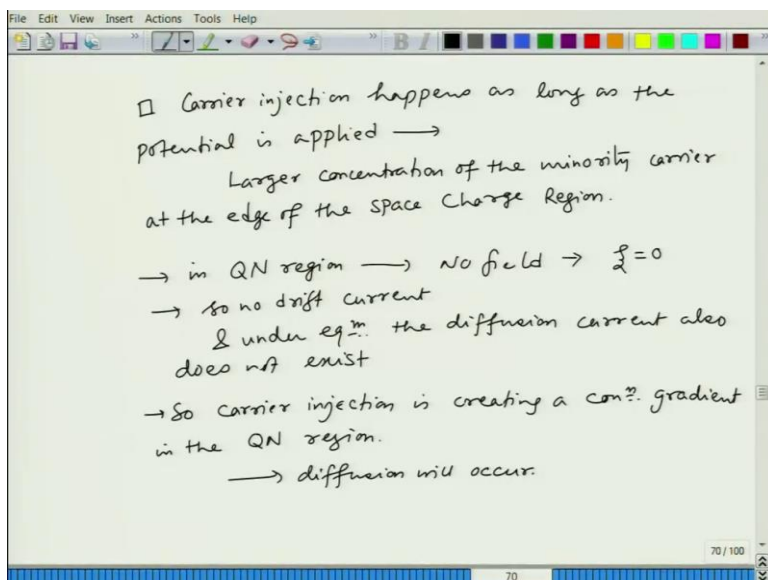 File Edit View Insert Actions Tools Help
B I
□ Carrier injection happens as long as the
potential is applied →
Larger concentration of the minority carrier
at the edge of the space Charge Region.
→ in QN region → No field → ξ=0
→ so no drift current
& under eqm. the diffusion current also
does not exist
→ So carrier injection is creating a conn. gradient
in the QN region.
→ diffusion will occur.
70 / 100
70